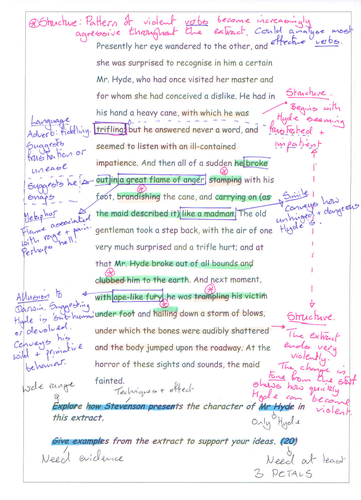 ⊛Structure: Pattern of violent verbs become increasingly
aggressive throughout the extract. Could analyse most
effective verbs.
Presently her eye wandered to the other, and
she was surprised to recognise in him a certain
Mr. Hyde, who had once visited her master and
for whom she had conceived a dislike. He had in
his hand a heavy cane, with which he was
trifling; but he answered never a word, and
seemed to listen with an ill-contained
impatience. And then all of a sudden he broke
out in a great flame of anger, stamping with his
foot, brandishing the cane, and carrying on (as
the maid described it) like a madman. The old
gentleman took a step back, with the air of one
very much surprised and a trifle hurt; and at
that Mr. Hyde broke out of all bounds and
clubbed him to the earth. And next moment,
with ape-like fury, he was trampling his victim
under foot and hailing down a storm of blows,
under which the bones were audibly shattered
and the body jumped upon the roadway. At the
horror of these sights and sounds, the maid
fainted.
Language
Adverb: fiddling.
Suggests
frustration or
unease
Suggests he
snaps
Metaphor
Flame associated
with rage + pain.
Perhaps hell!
Allusion to
Darwin. Suggesting
Hyde is subhuman
or devolved.
Conveys his
wild + primitive
behaviour.
Structure.
Begins with
Hyde seeming
frustrated +
impatient
Simile
Conveys how
unhinged + dangerous
Hyde is.
Structure.
The extract
ends very
violently.
The change in
tone from the start
shows how quickly
Hyde can become
violent.
Wide range
Techniques + effect
Explore how Stevenson presents the character of Mr Hyde in
this extract.
Only Hyde
Give examples from the extract to support your ideas. (20)
Need evidence
Need at least
3 PETALS